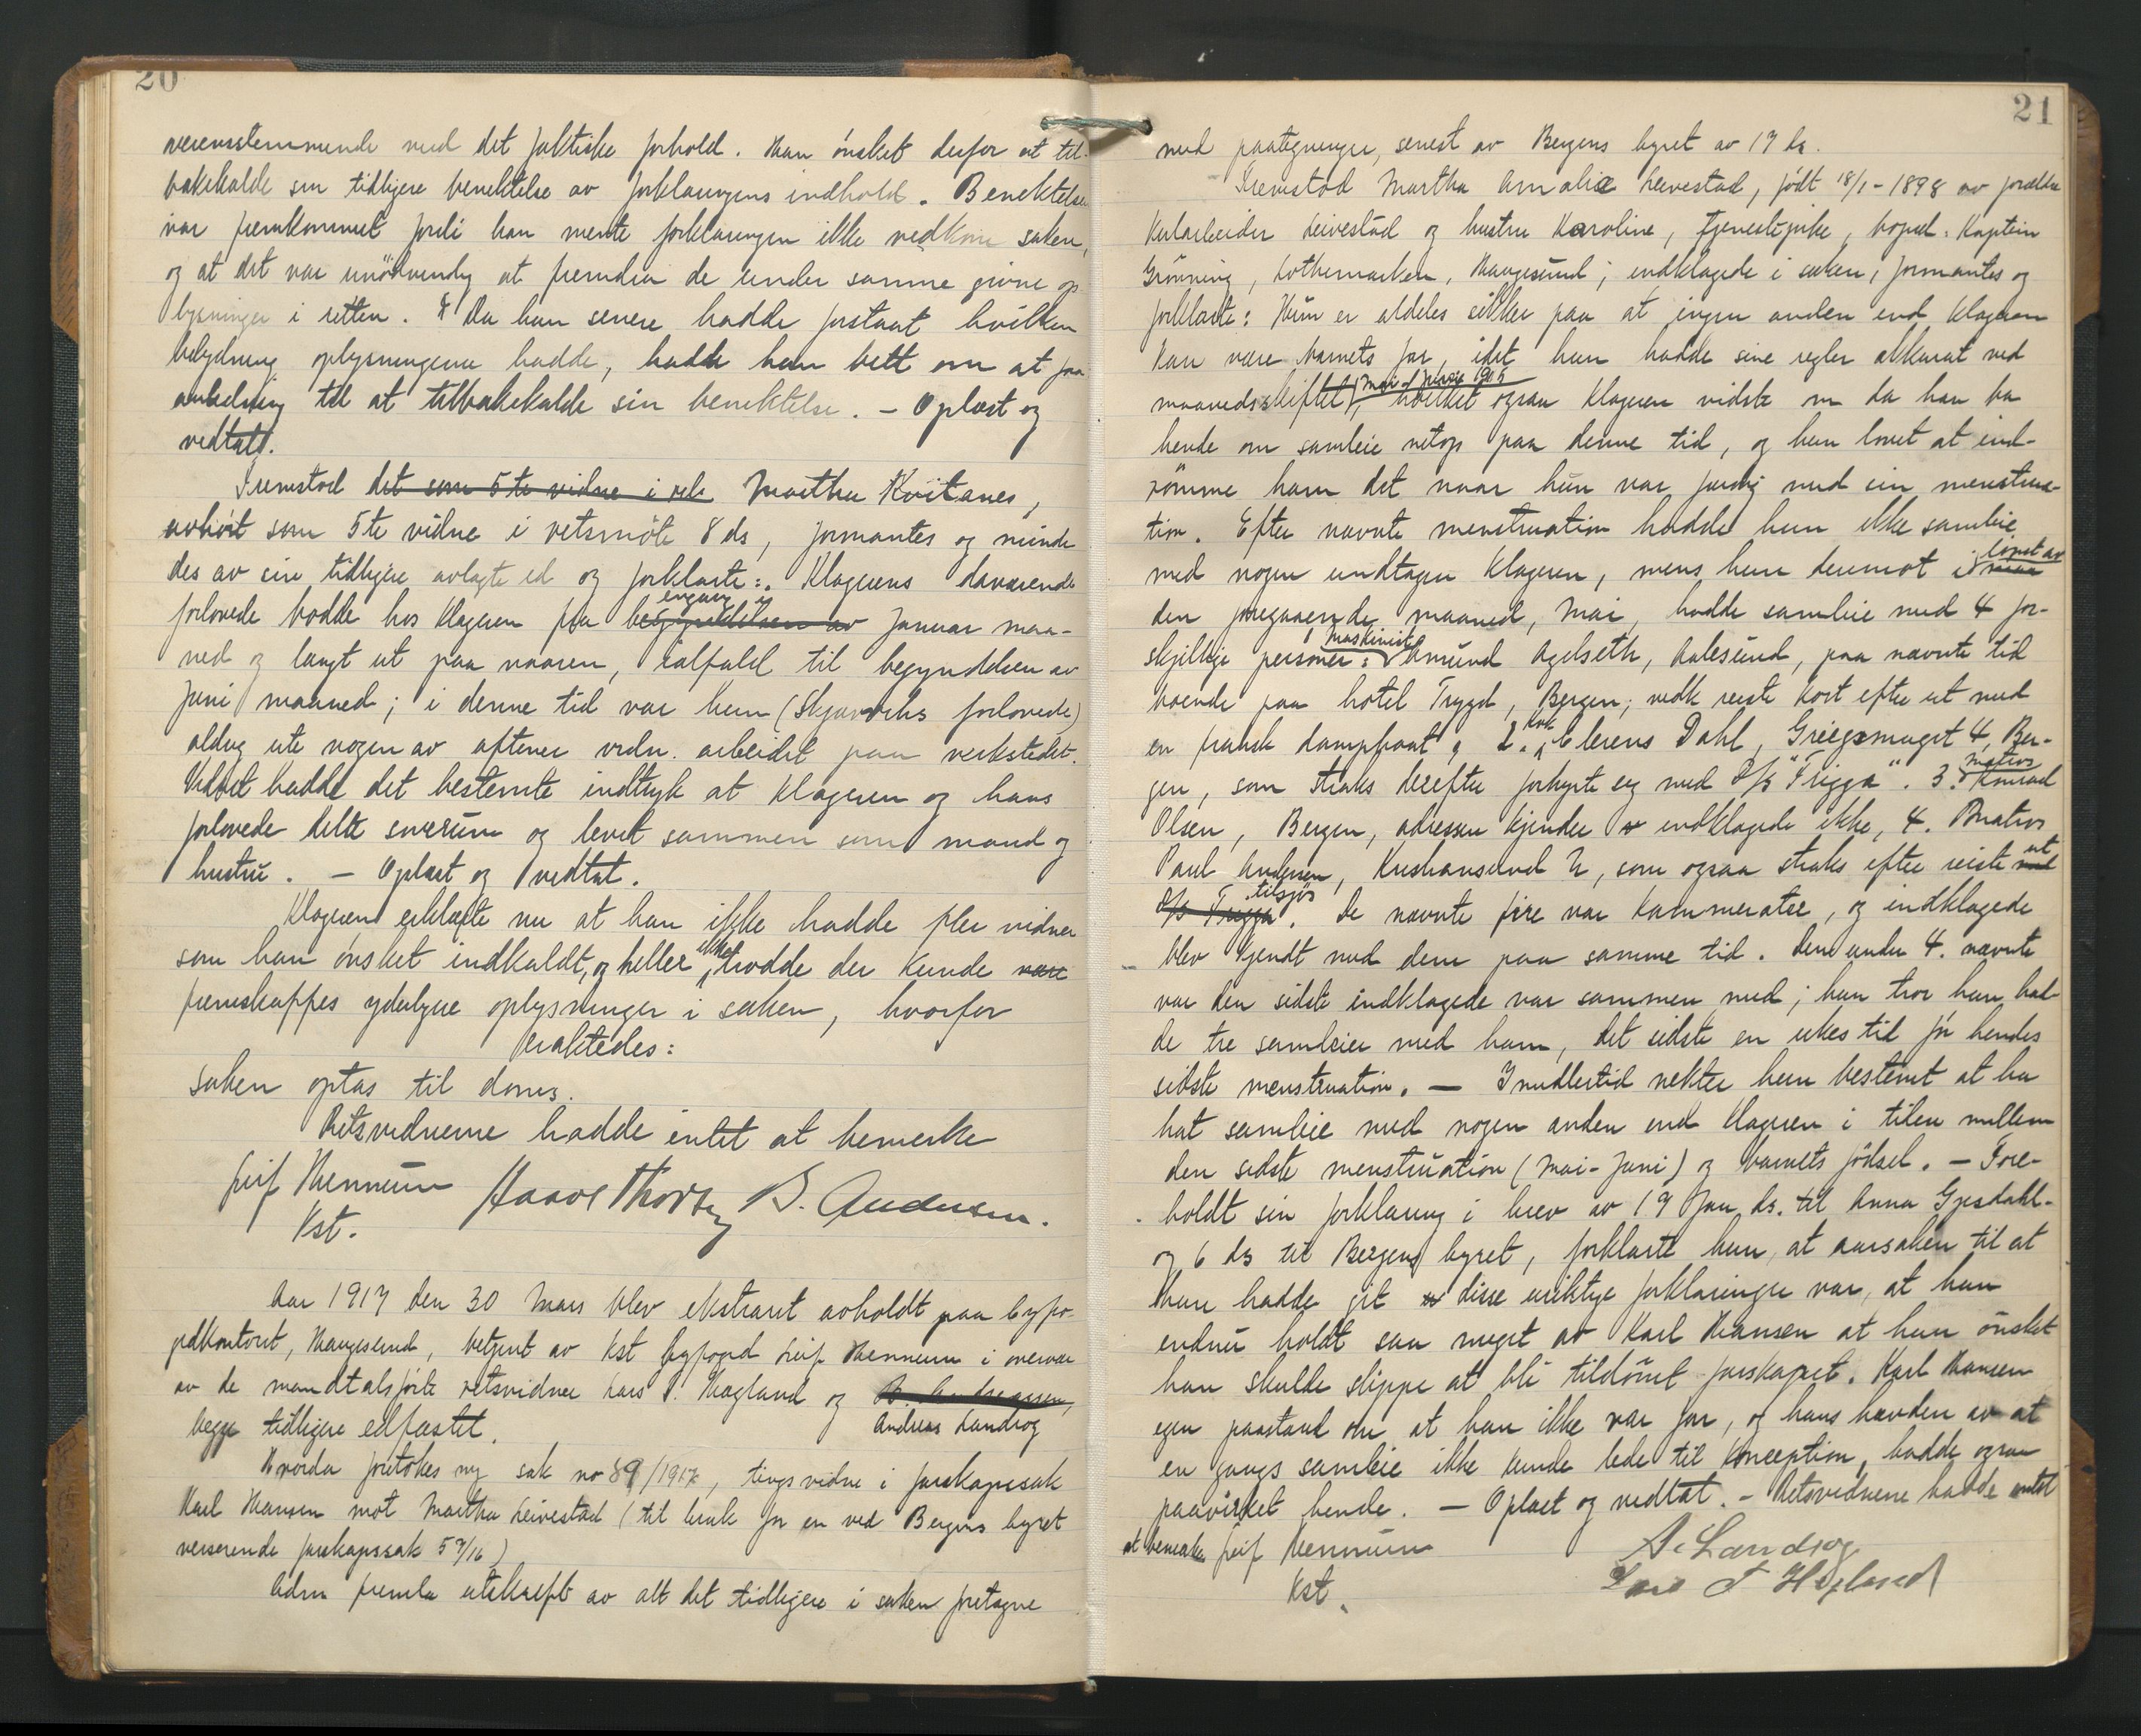 20
overensstemmende med det faktiske forhold. Han ønsket derfor at til-
bakekalde sin tidligere benektelse av forklaringens indhold. Benektelsen
var fremkommet fordi han mente forklaringen ikke vedkom saken,
og at det var unödvendig at fremdra de under samme givne op-
lysninger i retten. Da han senere hadde forstaat hvilken
betydning oplysningene hadde, hadde han bett om at faa
anledning til at tilbakekalde sin benektelse. - Oplæst og
vedtatt.
Fremstod det som 5te vidne i Martha Kvitanes,
avhört som 5te vidne i retsmöte 8 ds, formantes og minde-
des av sin tidligere avlagte ed og forklarte: Klagerens daværende
forlovede bodde hos klageren fra begyndelsen av engang i Januar maa-
ned og langt ut paa vaaren, ialfald til begyndelsen av
Juni maaned; i denne tid var hun (Skjerviks forlovede)
aldrig ute nogen av aftener vedn. arbeidet paa verkstedet.
Vidnet hadde det bestemte indtryk at klageren og hans
forlovede delte soverum og levet sammen som mand og
hustru. - Oplæst og vedtat.
Klageren erklærte nu at han ikke hadde fler vidner
som han ønsket indkaldt, og heller ikke trodde der kunde være
fremskaffes yderligere oplysninger i saken, hvorfor
fraktedes:
Saken optas til doms.
Retsvidnerne hadde intet at bemerke
Leif Mennum Haavol Thorsen B. Andersen.
Kst.
Aar 1917 den 30 Mars blev ekstraret avholdt paa byfo-
gedkontoret, Haugesund, betjent av kst byfoged Leif Mennum i overvær
av de mandtalsførte retsvidner Lars T. Høgland og B. Andreassen,
begge tidligere edfæstet. Andreas Landrog
Hvorda foretokes ny sak no 89/1917, tingsvidne i farskapssak
Karl Hansen mot Martha Leivestad (til bruk for en ved Bergens byret
verserende farskapssak 59/16)
Adm fremla utskrift av alt det tidligere i saken foretagne
21
med paategninger, senest av Bergens byret av 17 ds.
Fremstod Martha Amalie Leivestad, født 18/1-1898 av forældre
Kularbeider Leivestad og hustru Karoline, tjenestepike, boped: Kaptein
Grønning, Lothemarken, Haugesund; indklagede i saken, formantes og
forklarte: Hun er aldeles sikker paa at ingen anden end klageren
kan være barnets far, idet hun hadde sine regler akkurat ved
maanedsskiftet, (mai - juni 1915) hvilket ogsaa klageren vidste om da han ba
hende om samleie netop paa denne tid, og hun lovet at ind-
rømme ham det naar hun var færdig med sin menstrua-
tion. Efter nævnte menstruation hadde hun ikke samleie
med nogen undtagen klageren, mens hun derimot i løpet av
den foregaaende maaned, Mai, hadde samleie med 4 for-
skjellige personer: maskinist Amund Agelseth, Aalesund, paa nævnte tid
boende paa hotel Trygd, Bergen; vedk reiste kort efter ut med
en fransk dampbaat, 2. kok Elerens Dahl, Griegsmuget 4, Ber-
gen, som straks derefter forhyrte sig med D/S "Frigga". 3. matros Konrad
Olsen, Bergen, adressen kjender indklagede ikke, 4. Matros
Paul Andersen, Kristiansund N, som ogsaa straks efter reiste med ut
D/S Frigga tilsjøs. De nævnte fire var kammerater, og indklagede
blev kjendt med dem paa samme tid. Den under 4. nævnte
var den sidste indklagede var sammen med; hun tror hun had-
de tre samleier med ham, det sidste en ukes tid før hendes
sidste menstruation. - Imidlertid nekter hun bestemt at ha
hat samleie med nogen anden end klageren i tiden mellem
den sidste menstruation (Mai-Juni) og barnets födsel. - Fore-
holdt sin forklaring i brev av 19 Jan. ds. til Anna Gjesdahl
og 6 ds til Bergens byret, forklarte hun, at aarsaken til at
hun hadde git disse uriktige forklaringer var, at hun
endnu holdt saa meget av Karl Hansen at hun ønsket
han skulde slippe at bli tildömt farskapet. Karl Hansen
egen paastand om at han ikke var far, og hans hævden av at
en gangs samleie ikke kunde lede til konception, hadde ogsaa
paavirket hende. - Oplæst og vedtat. - Retsvidnene hadde intet
at bemerke Leif Mennum A. Landrog
Kst. Lars T Høgland